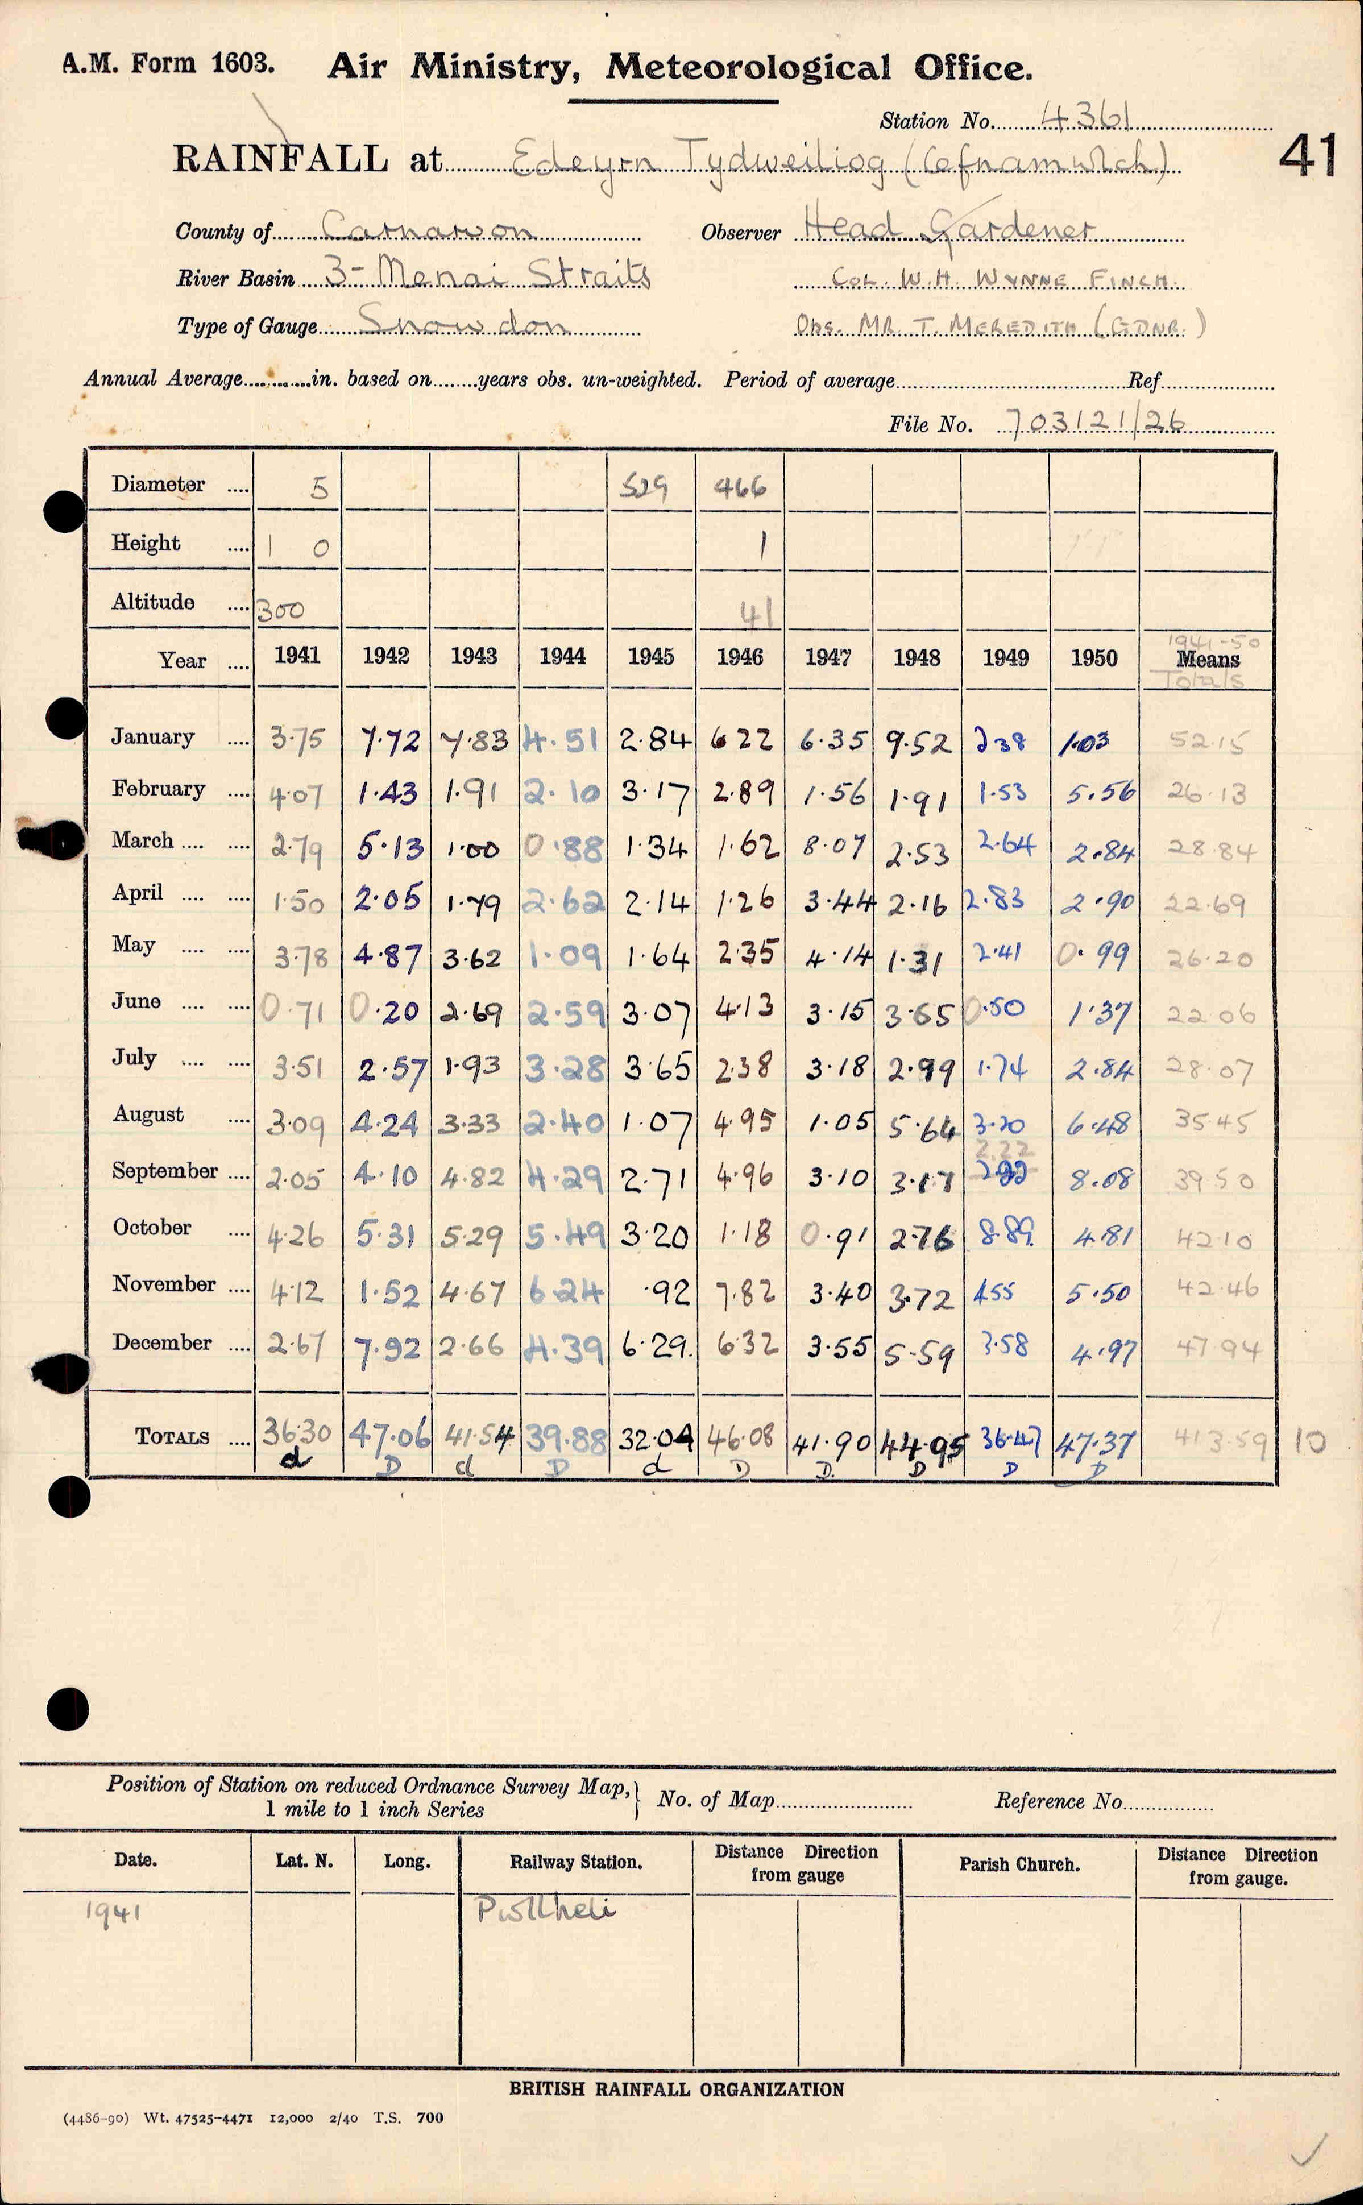 A.M. Form 1603. Air Ministry, Meteorological Office.
Station No. 4361
RAINFALL at Edeyrn Tydweiliog (Cefnamwlch) 41
County of Carnarvon Observer Head Gardener
River Basin 3 - Menai Straits Col. W. H. Wynne Finch.
Type of Gauge Snowdon Obs. Mr. T. Meredith (Gdnr.)
Annual Average............in. based on........years obs. un-weighted. Period of average........ Ref........
File No. 703121/26
Diameter .... 5 529 466
Height .... 1 0 1
Altitude .... 300 41
Year .... 1941 1942 1943 1944 1945 1946 1947 1948 1949 1950 1941-50 Means Totals
January .... 3.75 7.72 7.83 4.51 2.84 6 22 6.35 9.52 2 38 1.03 52.15
February .... 4.07 1.43 1.91 2.10 3.17 2.89 1.56 1.91 1.53 5.56 26.13
March .... .... 2.79 5.13 1.00 0.88 1.34 1.62 8.07 2.53 2.64 2.84 28.84
April .... .... 1.50 2.05 1.79 2.62 2.14 1.26 3.44 2.16 2.83 2.90 22.69
May .... .... 3.78 4.87 3.62 1.09 1.64 2.35 4.14 1.31 2.41 0.99 26.20
June .... .... 0.71 0.20 2.69 2.59 3.07 4.13 3.15 3.65 0.50 1.37 22.06
July .... .... 3.51 2.57 1.93 3.28 3.65 2.38 3.18 2.99 1.74 2.84 28.07
August .... 3.09 4.24 3.33 2.40 1.07 4.95 1.05 5.64 3.20 6.48 35.45
2.22
September .... 2.05 4.10 4.82 4.29 2.71 4.96 3.10 3.17 2.22 8.08 39.50
October .... 4.26 5.31 5.29 5.49 3.20 1.18 0.91 2.76 8.89 4.81 42.10
November .... 4.12 1.52 4.67 6.24 .92 7.82 3.40 3.72 4.55 5.50 42.46
December .... 2.67 7.92 2.66 4.39 6.29. 6.32 3.55 5.59 3.58 4.97 47.94
TOTALS .... 36.30 47.06 41.54 39.88 32.04 46.08 41.90 44.95 36.47 47.37 413.59 10
d D d D d D D. D D D
Position of Station on reduced Ordnance Survey Map, 1 mile to 1 inch Series } No. of Map........ Reference No........
Date. Lat. N. Long. Railway Station. Distance Direction from gauge Parish Church. Distance Direction from gauge.
1941 Pwllheli
BRITISH RAINFALL ORGANIZATION
(4486-90) Wt. 47525-4471 12,000 2/40 T.S. 700